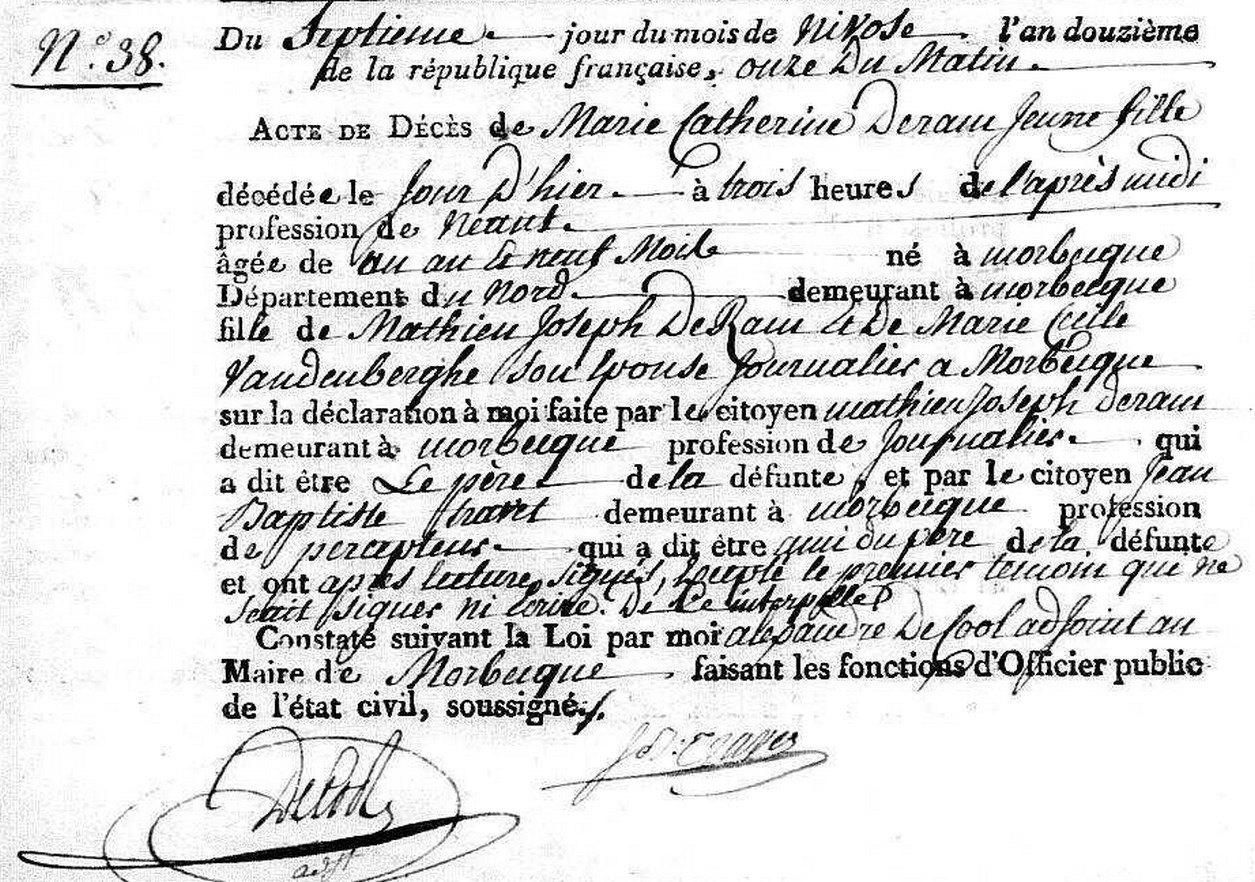 N.º 38.
Du Septieme jour du mois de Nivose l'an douzième
de la république française, onze Du Matin.
ACTE DE DÉCÈS de Marie Catherine Deram Jeune fille
décédée le Jour D'hier à trois heures del'après midi
profession de Neant.
âgée de un an & neuf Mois né à morbecque
Département du Nord demeurant à morbecque
fille de Mathieu Joseph DeRam & De Marie Cecile
Vandenberghe Son Epouse Journalier a Morbecque
sur la déclaration à moi faite par le citoyen mathieu Joseph deram
demeurant à morbecque profession de Journalier qui
a dit être Le père de la défunte, et par le citoyen Jean
Baptiste demeurant à morbecque profession
de percepteur qui a dit être ami du père de la défunte
et ont après lecture, signés, Excepté le premier temoin que ne
Scait Signer ni Ecrire. De Ce interpellé
Constaté suivant la Loi par moi alexandre DeCool adjoint au
Maire de Morbecque faisant les fonctions d'Officier public
de l'état civil, soussigné.
DeCool
adjt